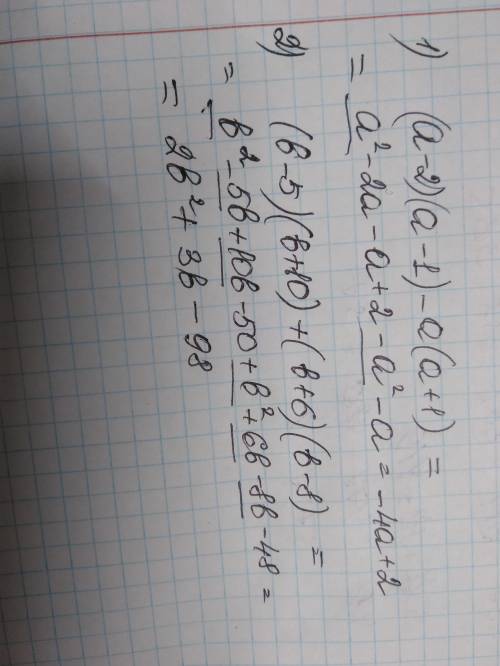 1) (a-2)(a-1)-a(a+1)=
= a²-2a-a+2-a²-a=-4a+2
2) (b-5)(b+10)+(b+6)(b-8)=
= b²-5b+10b-50+b²+6b-8b-48=
= 2b²+3b-98